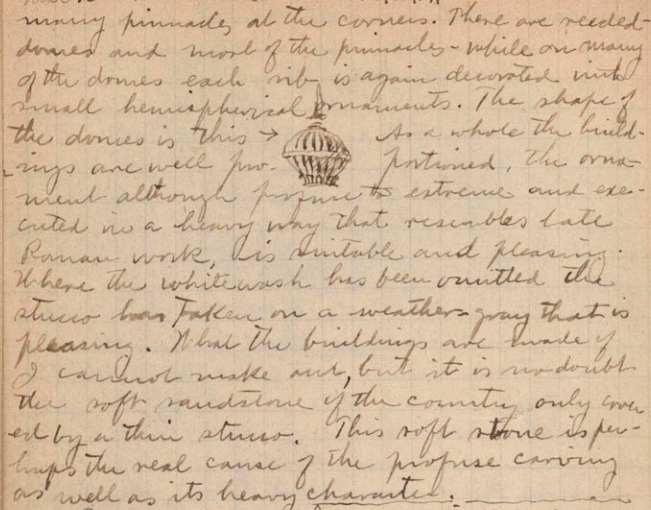 many pinnacles at the corners. There are reeded
domes and most of the pinnacles - while on many
of the domes each rib is again decorated with
small hemispherical ornaments. The shape of
the domes is this → As a whole the build-
ings are well pro- portioned, the orna-
ment although profuse to extreme and exe-
cuted in a heavy way that resembles late
Roman work, is suitable and pleasing.
Where the whitewash has been omitted the
stucco has taken on a weathers-gray that is
pleasing. What the buildings are made of
I cannot make out, but it is no doubt
the soft sandstone of the country only cover
ed by a thin stucco. This soft stone is per-
haps the real cause of the profuse carving
as well as its heavy character.